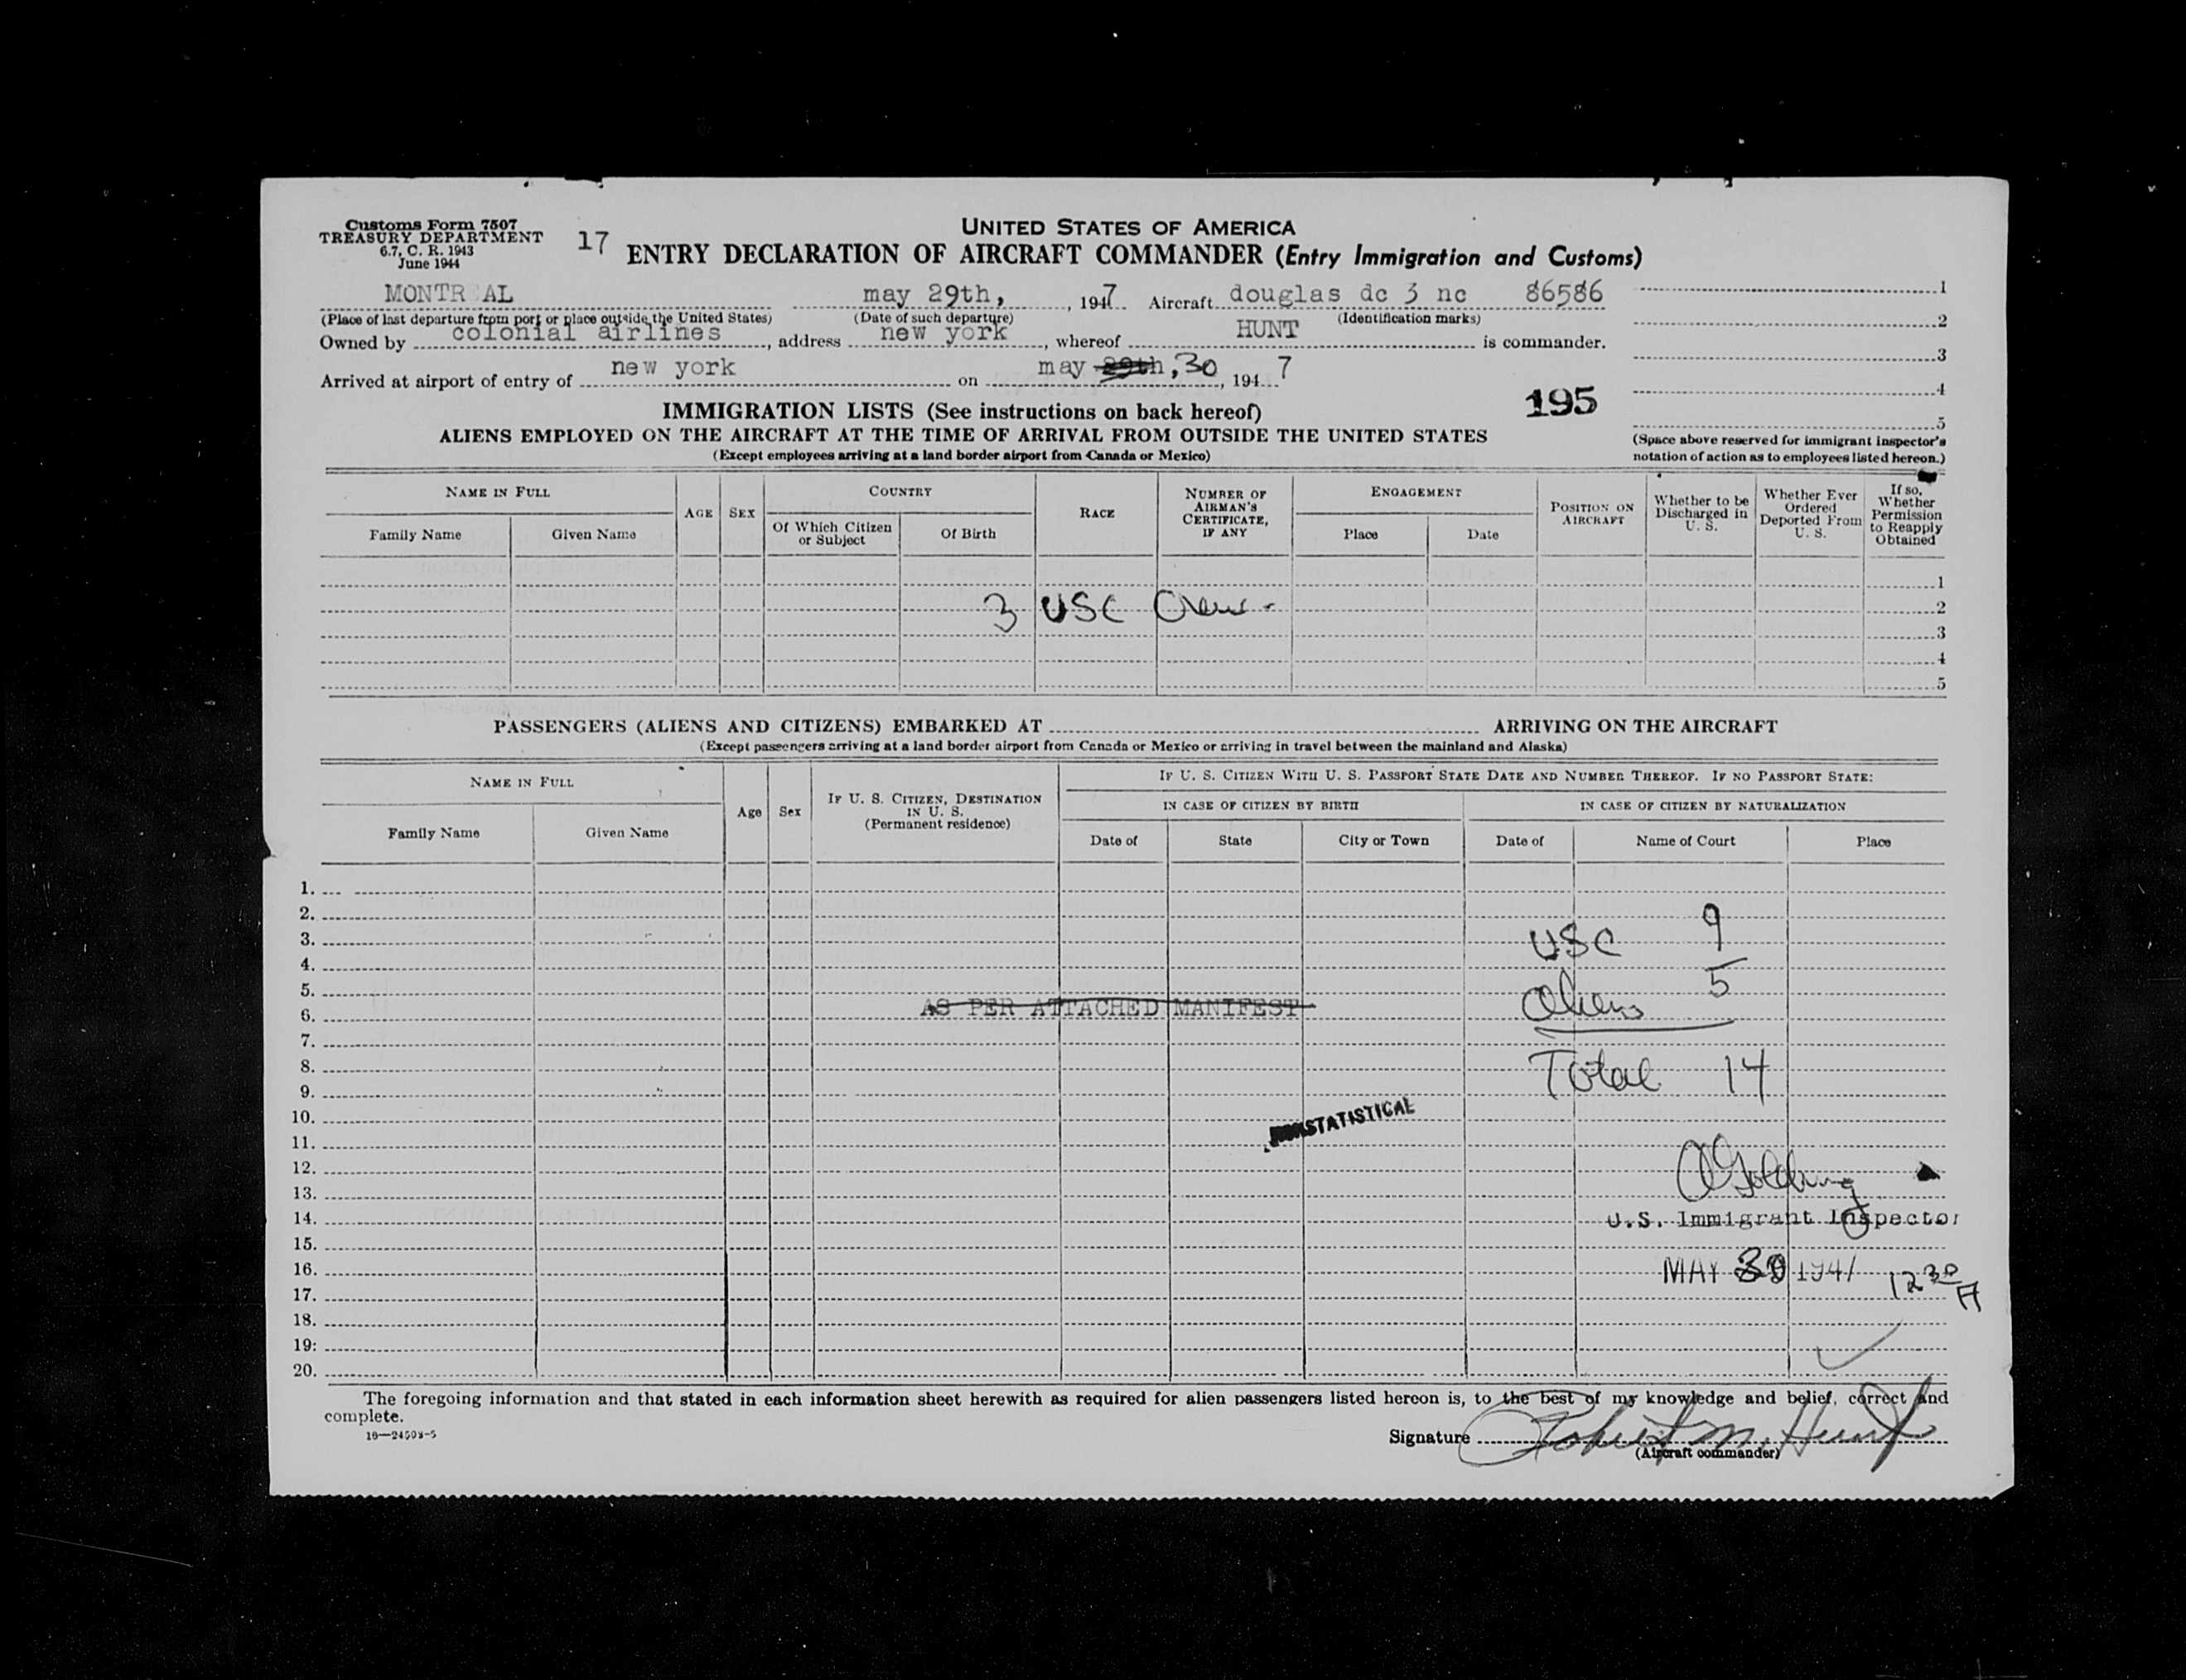 Customs Form 7507
TREASURY DEPARTMENT
6.7, C. R. 1943
June 1944
17
UNITED STATES OF AMERICA
ENTRY DECLARATION OF AIRCRAFT COMMANDER (Entry Immigration and Customs)
MONTR AL may 29th, , 1947 Aircraft douglas dc 3 nc 86586
(Place of last departure from port or place outside the United States) (Date of such departure) (Identification marks)
Owned by colonial airlines, address new york, whereof HUNT is commander.
Arrived at airport of entry of new york on may 29th, 30, 1947
1
2
3
4
5
(Space above reserved for immigrant inspector's
notation of action as to employees listed hereon.)
195
IMMIGRATION LISTS (See instructions on back hereof)
ALIENS EMPLOYED ON THE AIRCRAFT AT THE TIME OF ARRIVAL FROM OUTSIDE THE UNITED STATES
(Except employees arriving at a land border airport from Canada or Mexico)
NAME IN FULL
Family Name Given Name
AGE
SEX
COUNTRY
Of Which Citizen or Subject
Of Birth
RACE
NUMBER OF AIRMAN'S CERTIFICATE, IF ANY
ENGAGEMENT
Place Date
POSITION ON AIRCRAFT
Whether to be Discharged in U. S.
Whether Ever Ordered Deported From U. S.
If so, Whether Permission to Reapply Obtained
1
3 USC Crew - 2
3
4
5
PASSENGERS (ALIENS AND CITIZENS) EMBARKED AT ARRIVING ON THE AIRCRAFT
(Except passengers arriving at a land border airport from Canada or Mexico or arriving in travel between the mainland and Alaska)
NAME IN FULL
Family Name Given Name
Age
Sex
IF U. S. CITIZEN, DESTINATION IN U. S.
(Permanent residence)
IF U. S. CITIZEN WITH U. S. PASSPORT STATE DATE AND NUMBER THEREOF. IF NO PASSPORT STATE:
IN CASE OF CITIZEN BY BIRTH IN CASE OF CITIZEN BY NATURALIZATION
Date of State City or Town Date of Name of Court Place
1.
2.
3. USC 9
4.
5. Aliens 5
6. AS PER ATTACHED MANIFEST
7.
8. Total 14
9.
10.
11. STATISTICAL
12.
13.
14. U.S. Immigrant Inspector
15.
16. MAY 30 194 12 30 A
17.
18.
19.
20.
The foregoing information and that stated in each information sheet herewith as required for alien passengers listed hereon is, to the best of my knowledge and belief, correct and
complete.
Signature Robert M. Hunt
(Aircraft commander)